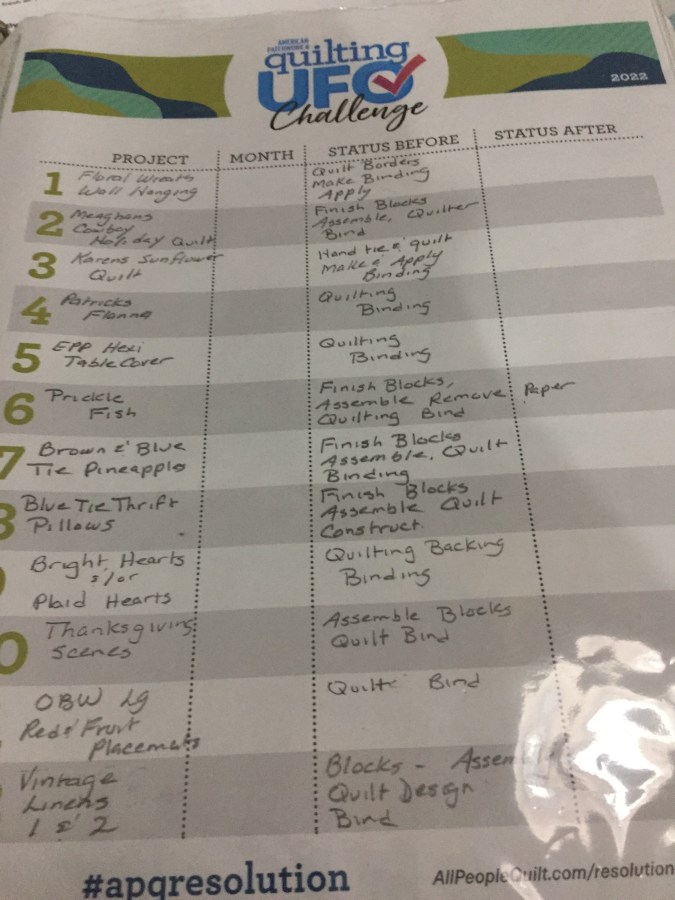 AMERICAN
PATCHWORK &
quilting
UFO
Challenge
2022
PROJECT MONTH STATUS BEFORE STATUS AFTER
1 Floral Wreath
Wall Hanging
Quilt Borders
Make Binding
Apply
2 Meaghans
Cowboy
Holiday Quilt
Finish Blocks
Assemble, Quilter
Bind
3 Karens Sunflower
Quilt
Hand tie & quilt
Make & Apply
Binding
4 Patricks
Quilting
Binding
5 EPP Hexi
Table Cover
Quilting
Binding
6 Prickle
Fish
Finish Blocks,
Assemble Remove Paper
Quilting Bind
7 Brown & Blue
Tie Pineapple
Finish Blocks
Assemble, Quilt
Binding
8 Blue Tie Thrift
Pillows
Finish Blocks
Assemble Quilt
Construct.
Bright Hearts
&/or
Plaid Hearts
Quilting Backing
Binding
0 Thanksgiving
Scenes
Assemble Blocks
Quilt Bind
OBW Lg
Red & Fruit
Placemats
Bind
Vintage
Linens
1 & 2
Blocks - Assem
Quilt Design
Bind
#apqresolution
AllPeopleQuilt.com/resolution